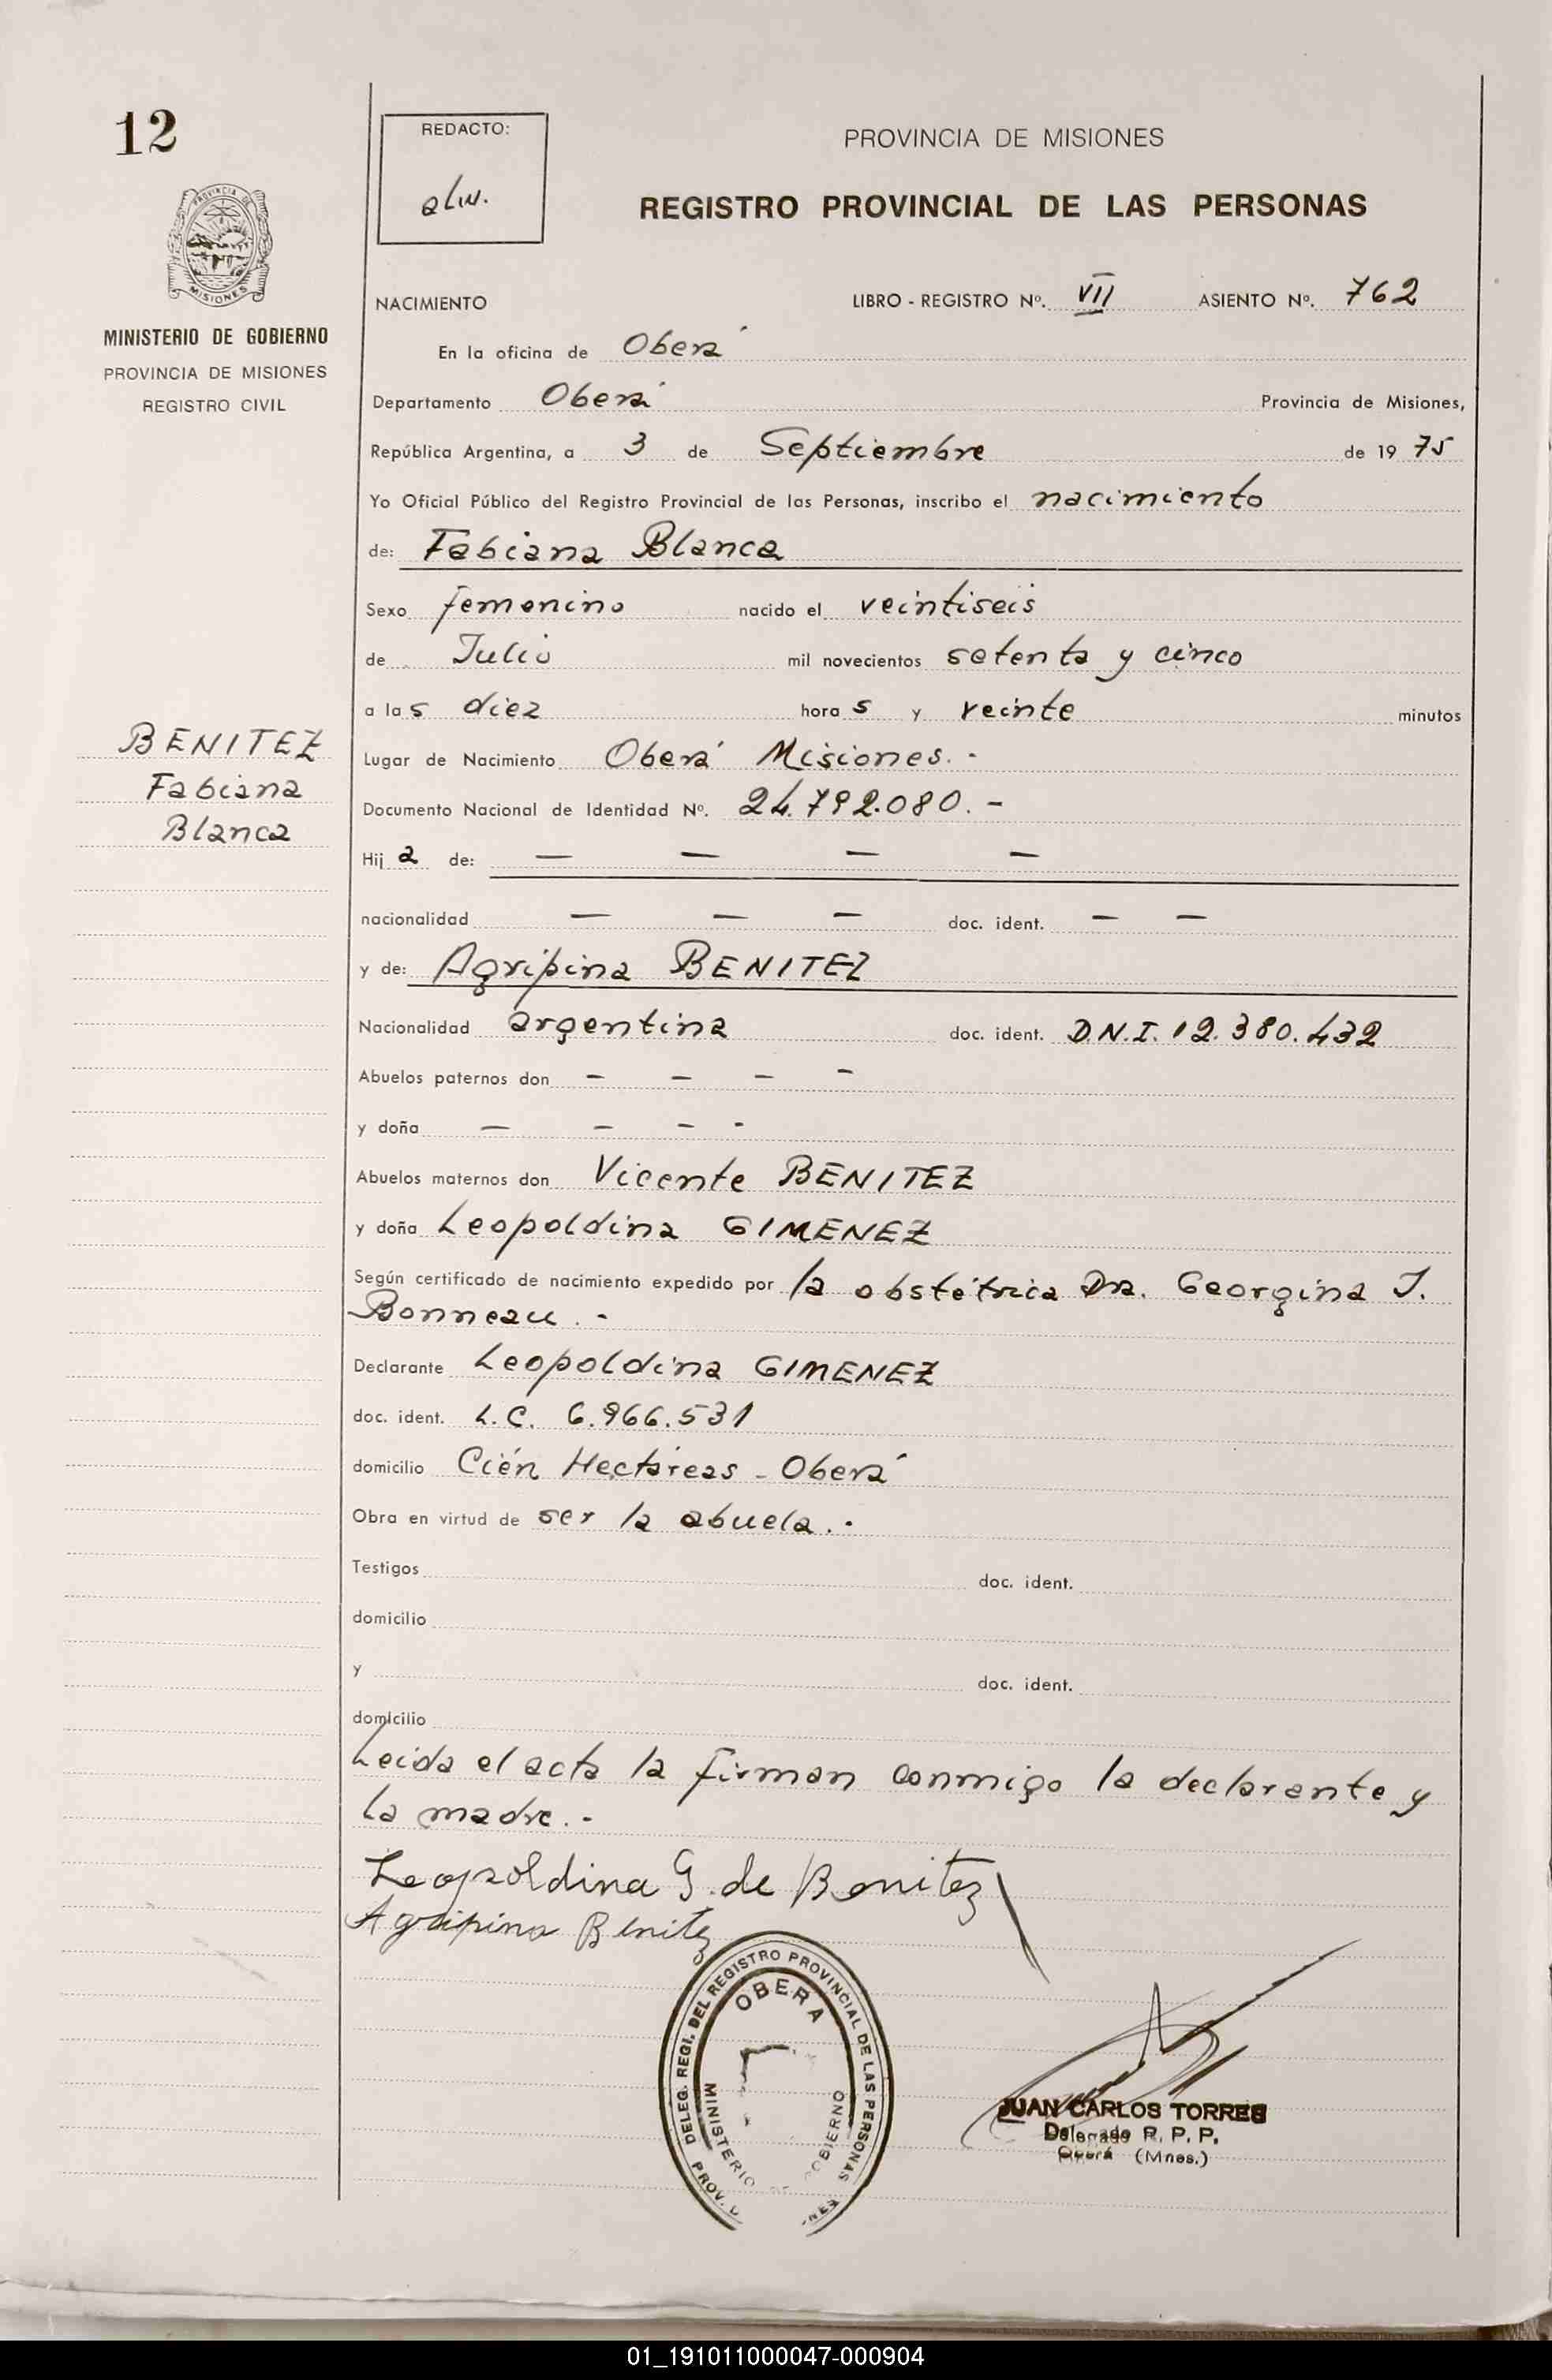 12
REDACTO:
PROVINCIA DE MISIONES
REGISTRO PROVINCIAL DE LAS PERSONAS
PROVINCIA DE
MISIONES
MINISTERIO DE GOBIERNO
PROVINCIA DE MISIONES
REGISTRO CIVIL
NACIMIENTO LIBRO - REGISTRO Nº. VII ASIENTO Nº. 762
En la oficina de Oberá
Departamento Oberá Provincia de Misiones,
República Argentina, a 3 de Septiembre de 19 75
Yo Oficial Público del Registro Provincial de las Personas, inscribo el nacimiento
de: Fabiana Blanca
Sexo femenino nacido el veintiseis
de Julio mil novecientos setenta y cinco
a las diez horas y veinte minutos
BENITEZ
Fabiana
Blanca
Lugar de Nacimiento Oberá Misiones.-
Documento Nacional de Identidad Nº. 24.792.080.-
Hija de: — — — —
nacionalidad — — — doc. ident. — —
y de: Agripina BENITEZ
Nacionalidad argentina doc. ident. D.N.I. 12.380.432
Abuelos paternos don - - - -
y doña — - - -
Abuelos maternos don Vicente BENITEZ
y doña Leopoldina GIMENEZ
Según certificado de nacimiento expedido por la obstétrica Dra. Georgina J.
Bonneau.-
Declarante Leopoldina GIMENEZ
doc. ident. L.C. 6.966.531
domicilio Cién Hectáreas - Oberá
Obra en virtud de ser la abuela.-
Testigos doc. ident.
domicilio
y doc. ident.
domicilio
Leida el acta la firman conmigo la declarante y
la madre.-
Leopoldina G. de Benitez
Agripina Benitez
DELEG. REGI. DEL REGISTRO PROVINCIAL DE LAS PERSONAS
OBERA
MINISTERIO
PROV.
JUAN CARLOS TORRES
Delegado R. P. P.
Oberá (Mnes.)
01_191011000047-000904